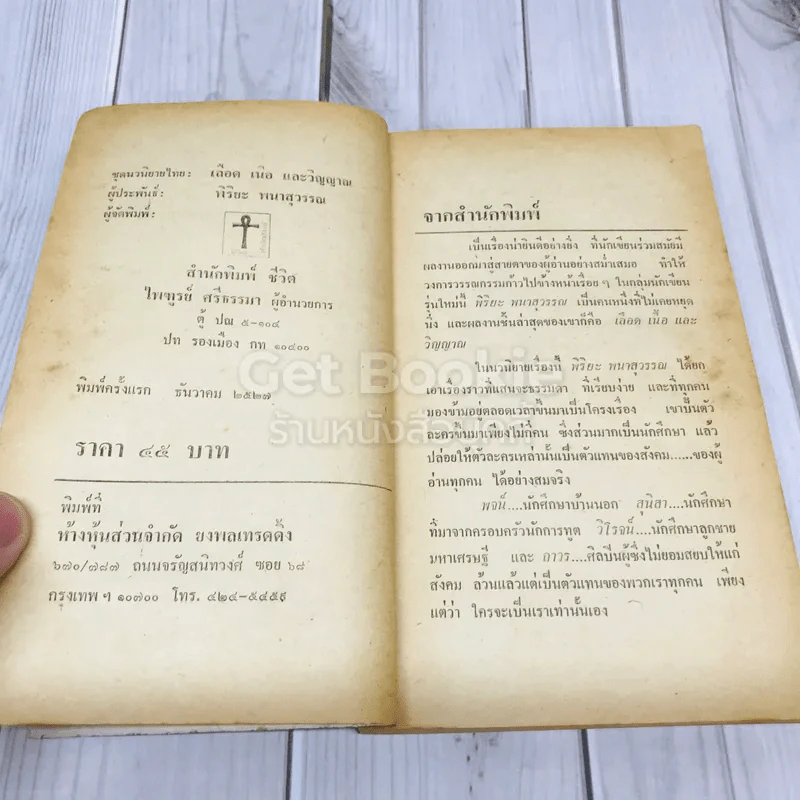 ชุดนวนิยายไทย: เลือด เนื้อ และวิญญาณ
ผู้ประพันธ์: พิริยะ พนาสุวรรณ
ผู้จัดพิมพ์:
สำนักพิมพ์ ชีวิต
ไพฑูรย์ ศรีธรรมา ผู้อำนวยการ
ตู้ ปณ ๕-๑๐๔
ปท รองเมือง กท ๑๐๔๐๐
พิมพ์ครั้งแรก ธันวาคม ๒๕๒๗
ราคา ๔๕ บาท
พิมพ์ที่
ห้างหุ้นส่วนจำกัด ยงพลเทรดดิ้ง
๖๓๐/๗๘๗ ถนนจรัญสนิทวงศ์ ซอย ๖๘
กรุงเทพ ฯ ๑๐๗๐๐ โทร. ๔๒๔-๕๔๕๙
จากสำนักพิมพ์
เป็นเรื่องน่ายินดีอย่างยิ่ง ที่นักเขียนร่วมสมัยมี
ผลงานออกมาสู่สายตาของผู้อ่านอย่างสม่ำเสมอ ทำให้
วงการวรรณกรรมก้าวไปข้างหน้าเรื่อย ๆ ในกลุ่มนักเขียน
รุ่นใหม่นี้ พิริยะ พนาสุวรรณ เป็นคนหนึ่งที่ไม่เคยหยุด
นิ่ง และผลงานชิ้นล่าสุดของเขาก็คือ เลือด เนื้อ และ
วิญญาณ
ในนวนิยายเรื่องนี้ พิริยะ พนาสุวรรณ ได้ยก
เอาเรื่องราวที่แสนจะธรรมดา ที่เรียบง่าย และที่ทุกคน
มองข้ามอยู่ตลอดเวลาขึ้นมาเป็นโครงเรื่อง เขาปั้นตัว
ละครขึ้นมาเพียงไม่กี่คน ซึ่งส่วนมากเป็นนักศึกษา แล้ว
ปล่อยให้ตัวละครเหล่านั้นเป็นตัวแทนของสังคม......ของผู้
อ่านทุกคน ได้อย่างสมจริง
พจน์....นักศึกษาบ้านนอก สุนิสา....นักศึกษา
ที่มาจากครอบครัวนักการทูต วิโรจน์....นักศึกษาลูกชาย
มหาเศรษฐี และ ถาวร....ศิลปินผู้ซึ่งไม่ยอมสยบให้แก่
สังคม ล้วนแล้วแต่เป็นตัวแทนของพวกเราทุกคน เพียง
แต่ว่า ใครจะเป็นเราเท่านั้นเอง
Get Bookie
ร้านหนังสือบุ๊คกี้